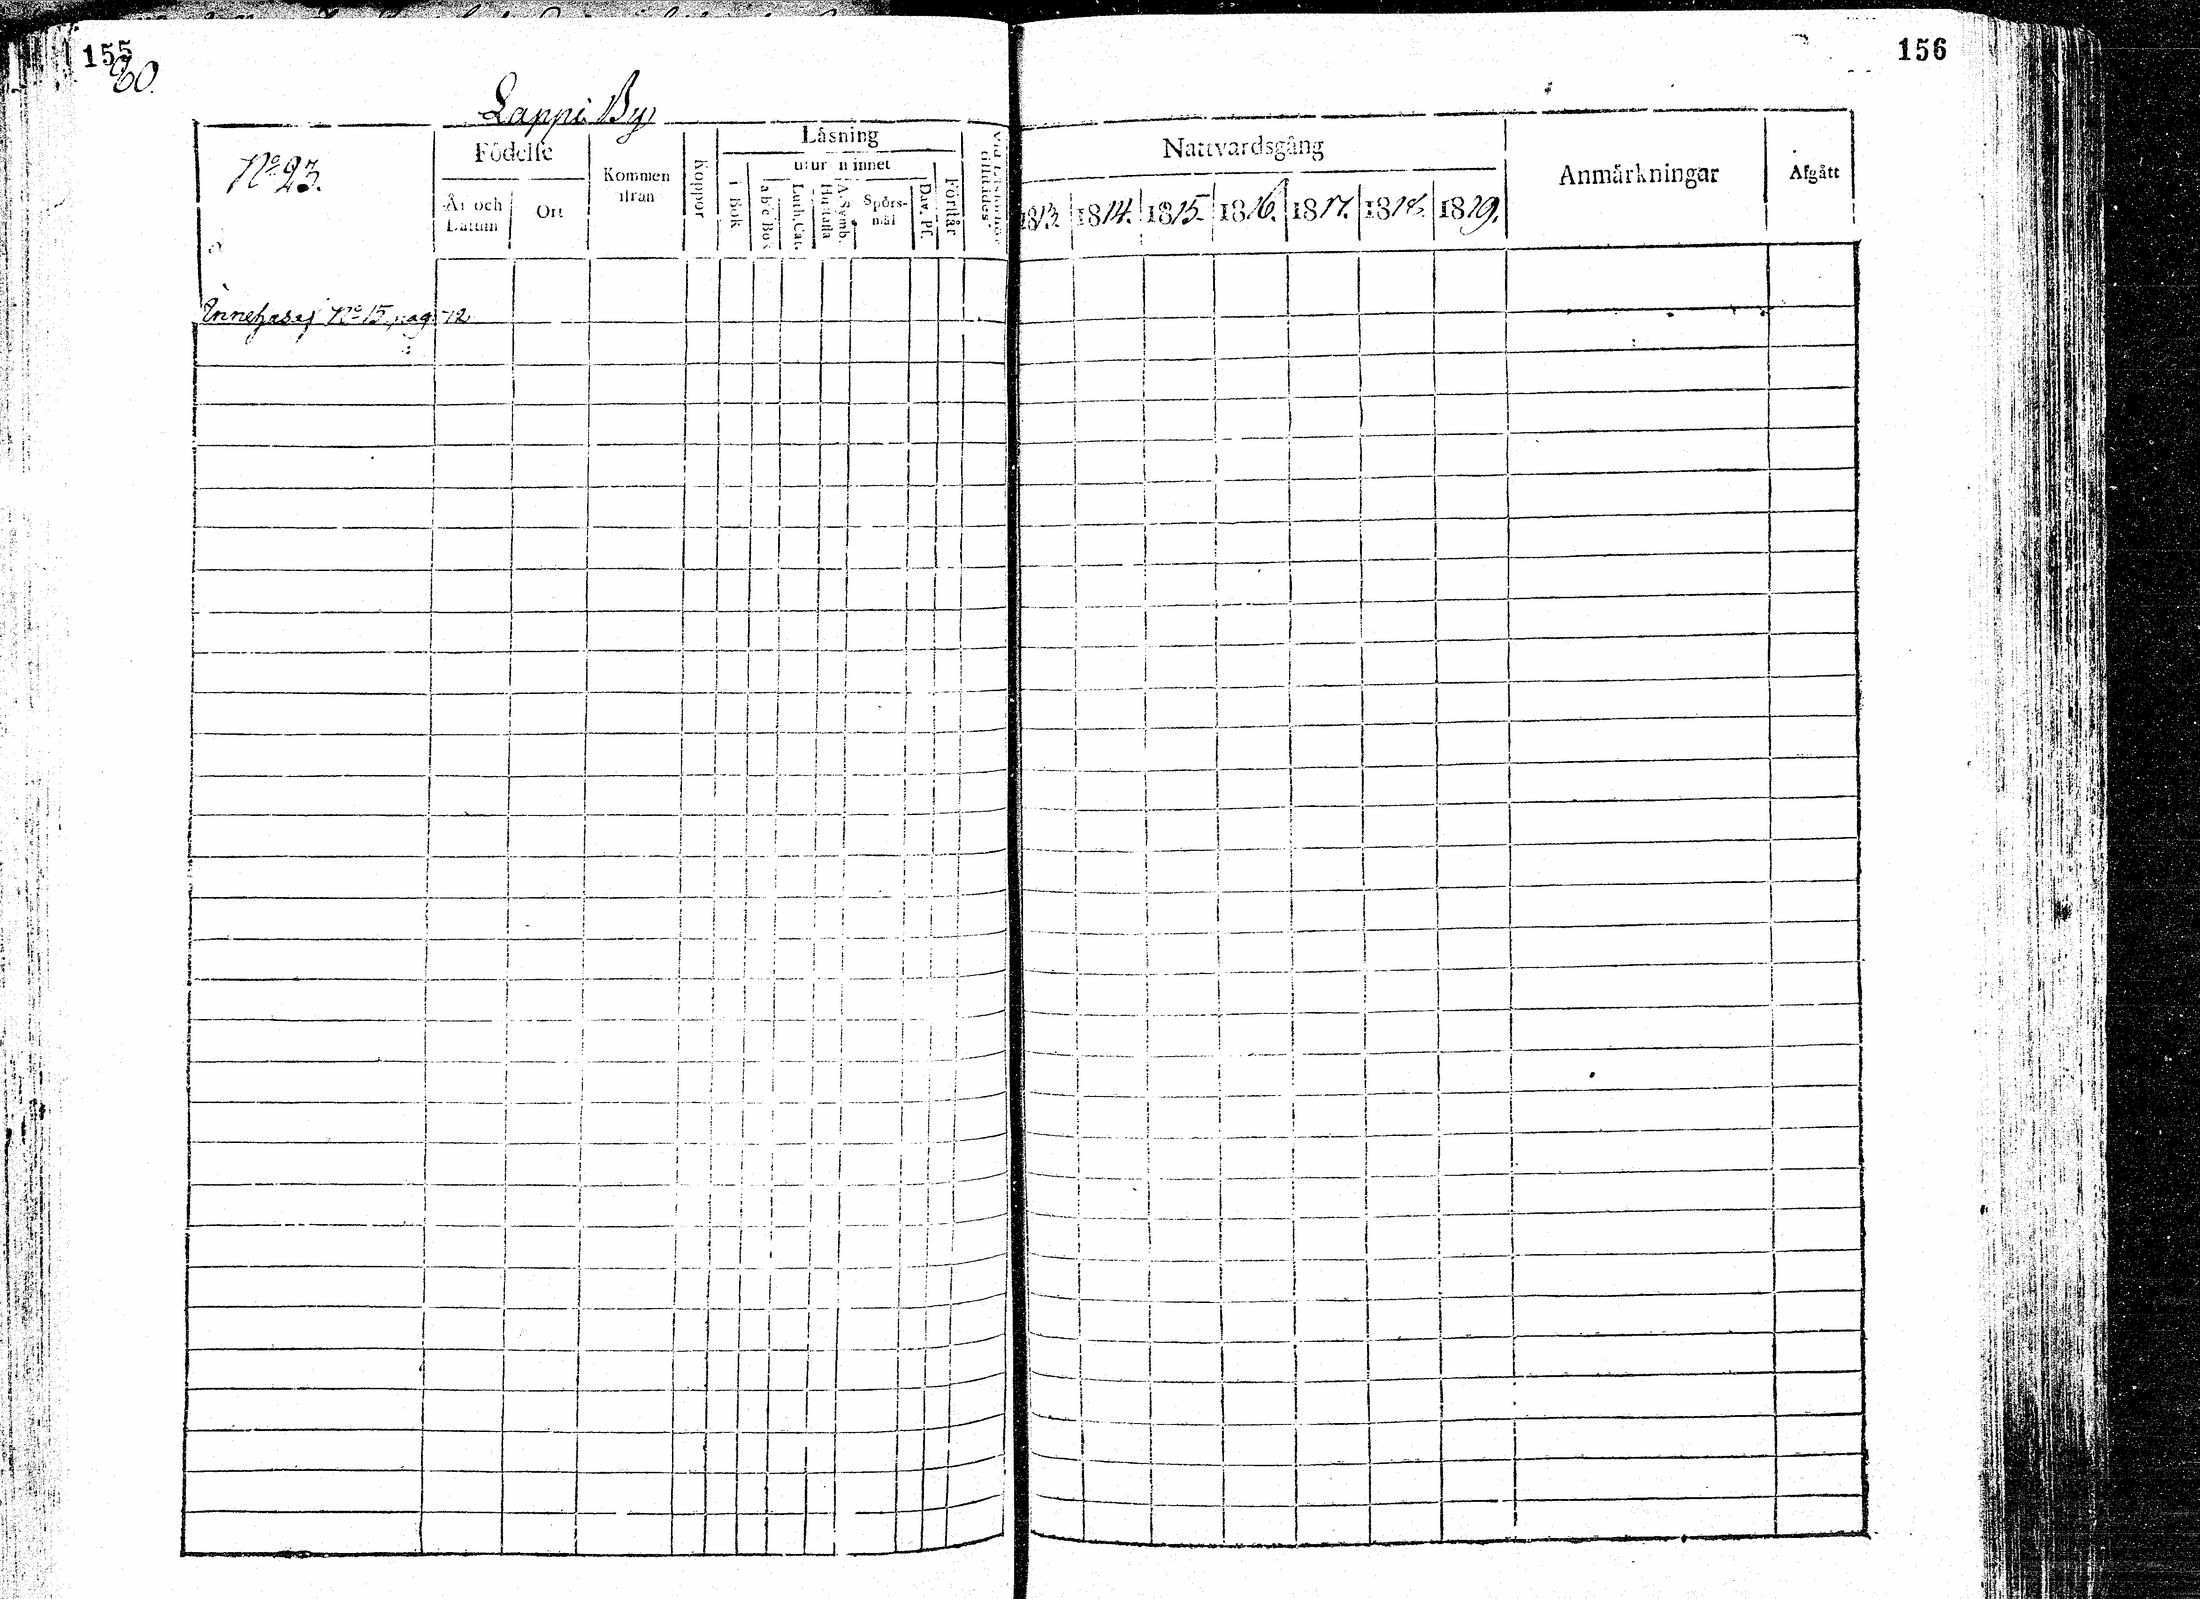 155
80.
156
Lappi By
No 23.
Födelse
År och Datum
Ort
Kommen ifrån
Koppor
Läsning
i Bok
utur minnet
a b c Bok
Luth. Cat.
Hustafla
A. Symb.
Spörsmål
Dav. Ps.
Förstår
Nattvardsgång
1813.
1814.
1815.
1816.
1817.
1818.
1819.
Anmärkningar
Afgått
No 15, pag. 72